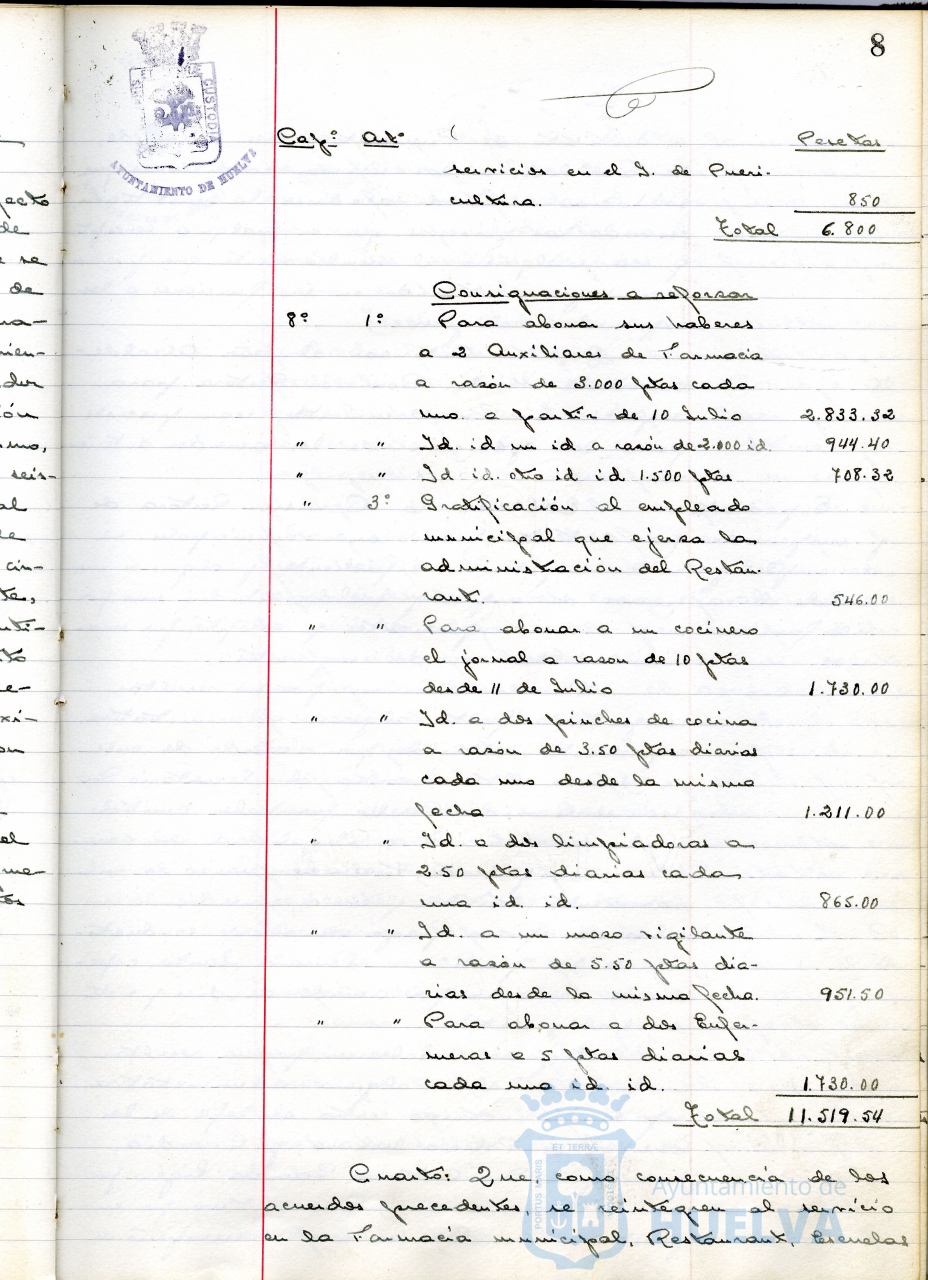 8
CUSTODIA
AYUNTAMIENTO DE HUELVA
Capº Artº Pesetas
servicios en el I. de Pueri-
cultura. 850
Total 6.800
Consignaciones a reforzar
8º 1º Para abonar sus haberes
a 2 Auxiliares de Farmacia
a razón de 3.000 ptas cada
uno a partir de 10 Julio 2.833.32
" " Id. id un id a razón de 2.000 id. 944.40
" " Id id. otro id id 1.500 ptas 708.32
" 3º Gratificación al empleado
municipal que ejerza la
administración del Restau-
rant. 546.00
" " Para abonar a un cocinero
el jornal a razon de 10 ptas
desde 11 de Julio 1.730.00
" " Id. a dos pinches de cocina
a razón de 3.50 ptas diarias
cada uno desde la misma
fecha 1.211.00
" " Id. a dos limpiadoras a
2.50 ptas diarias cada
una id. id. 865.00
" " Id. a un mozo vigilante
a razón de 5.50 ptas dia-
rias desde la misma fecha. 951.50
" " Para abonar a dos Enfer-
meras a 5 ptas diarias
cada una id. id. 1.730.00
Total 11.519.54
Cuarto: Que, como consecuencia de los
acuerdos precedentes, se reintegren al servicio
en la Farmacia municipal, Restaurant, Escuelas
ET TERRÆ
PORTUS MARIS
Ayuntamiento de
HUELVA